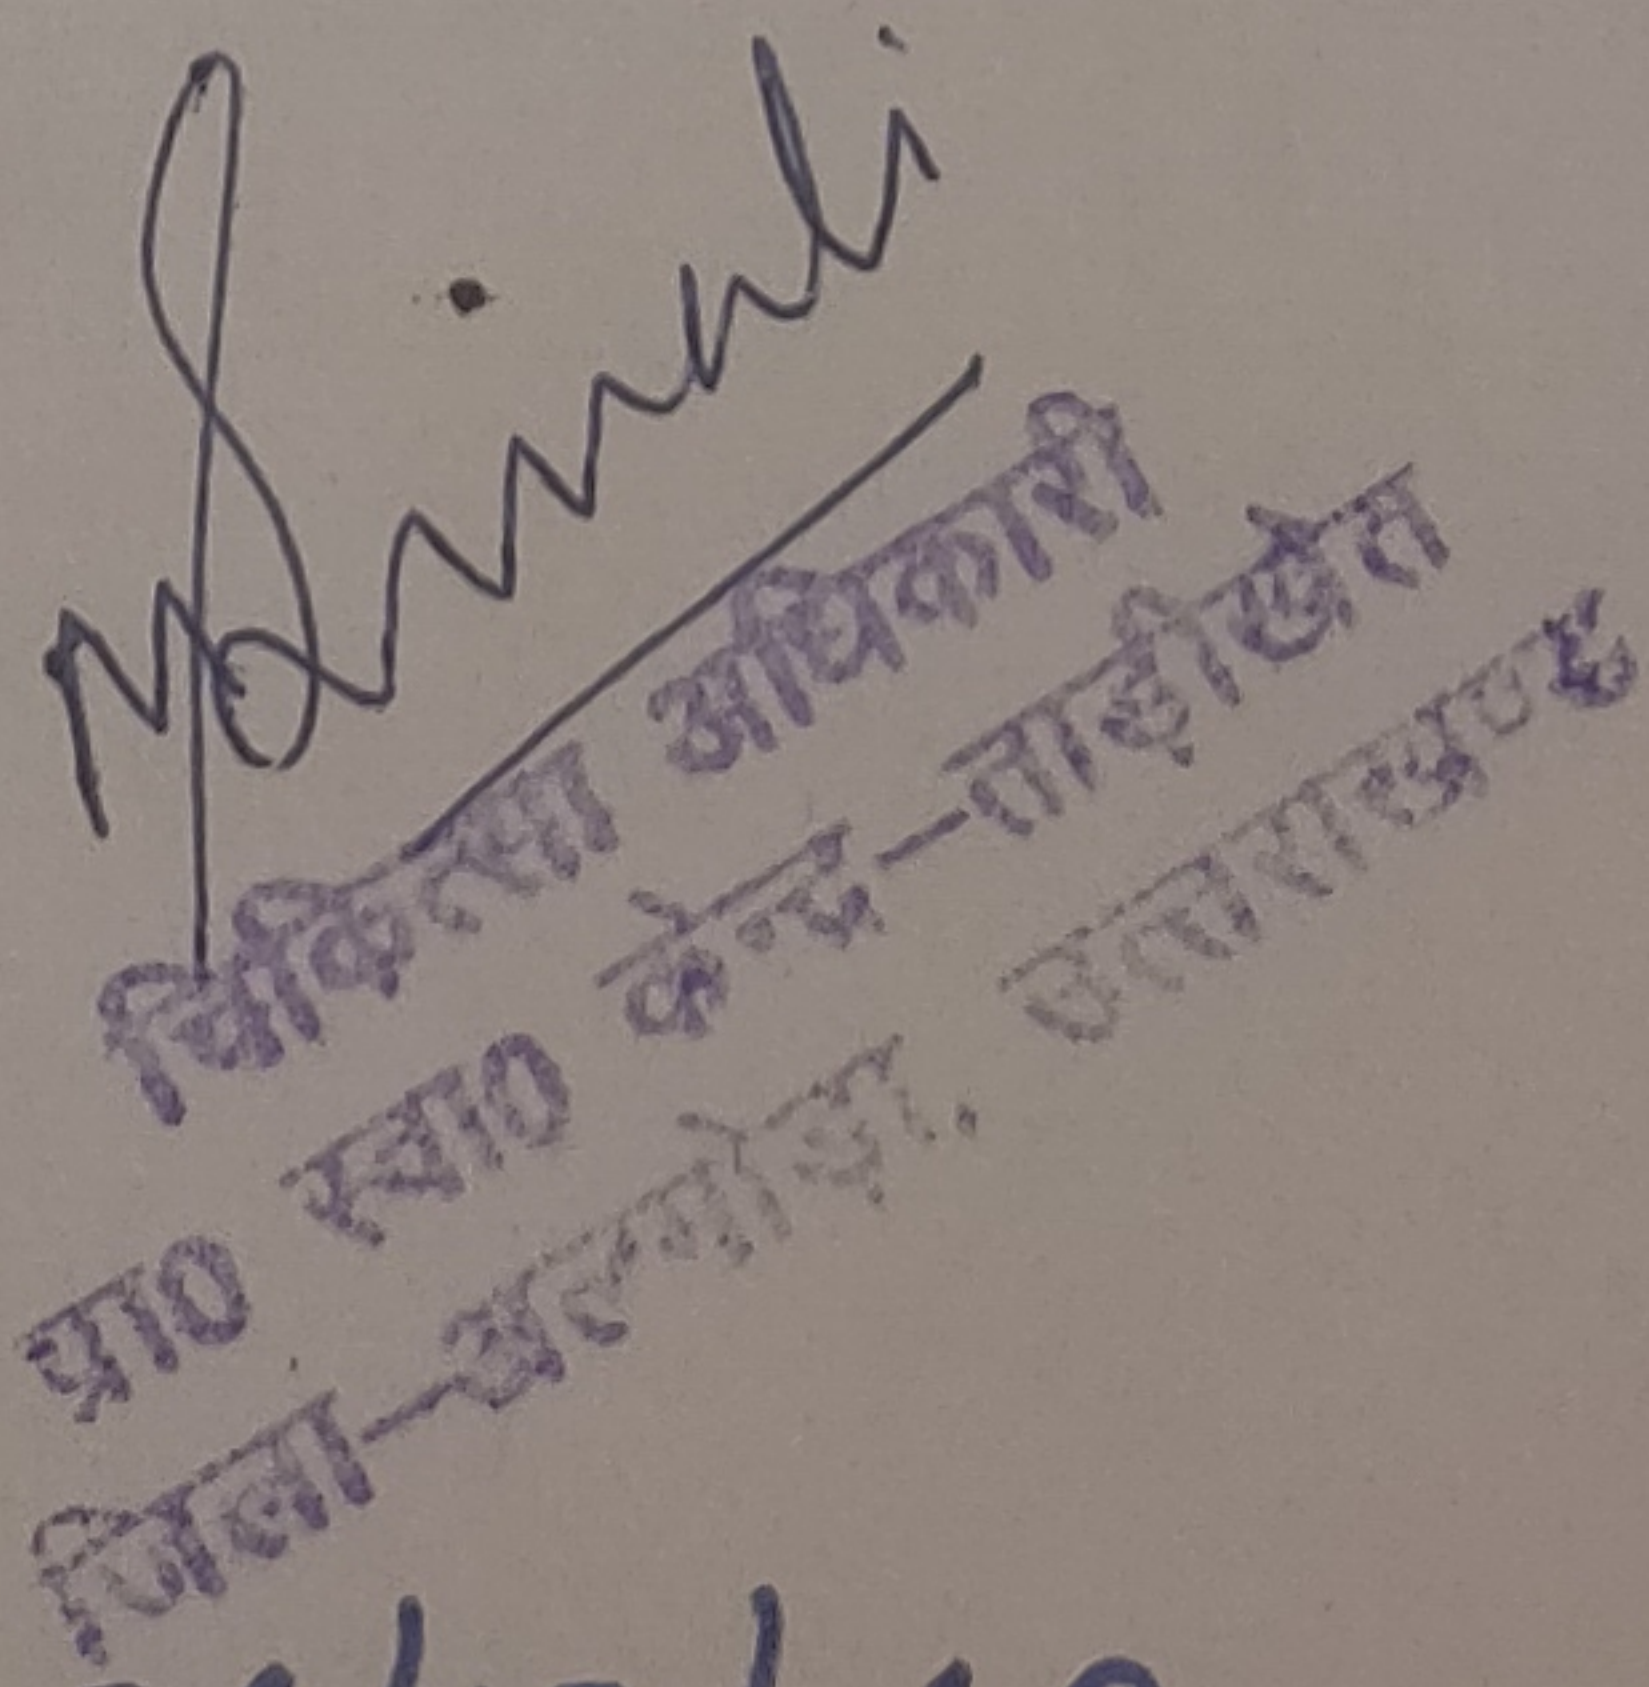 चिकित्सा अधिकारी
प्रा० स्वा० केन्द्र-ताड़ीखेत
जिला-अल्मोड़ा. उत्तराखण्ड